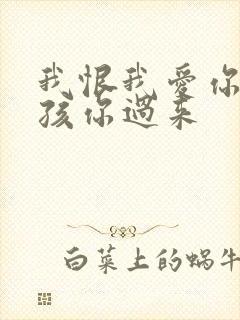 我恨我爱你
孩你过来
白菜上的蜗牛